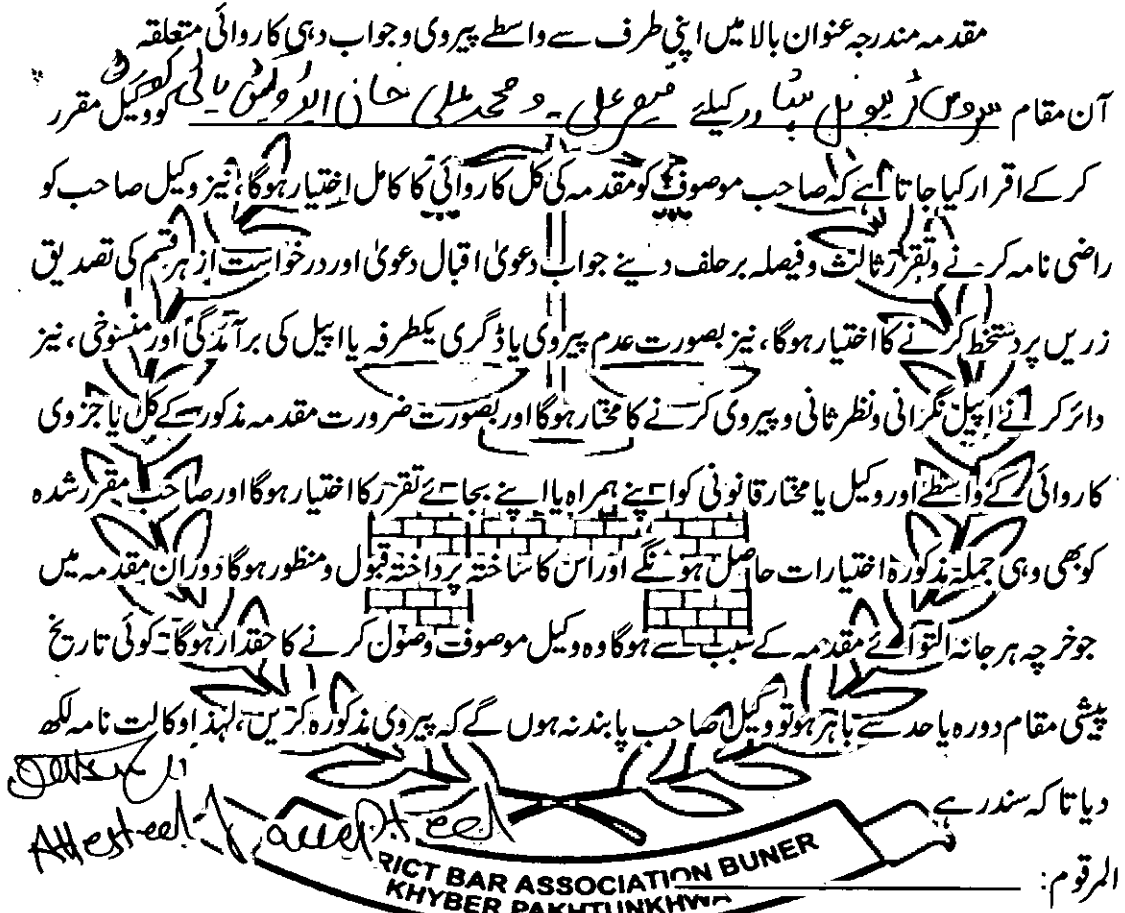 مقدمہ مندرجہ عنوان بالا میں اپنی طرف سے واسطے پیروی و جواب دہی کاروائی متعلقہ
آن مقام سروس ٹریبونل پشاور کیلئے علی ۔ و محمد علی خان ایڈوکیٹس کو وکیل مقرر
کر کے اقرار کیا جاتا ہے کہ صاحب موصوف کو مقدمہ کی کل کاروائی کا کامل اختیار ہوگا، نیز وکیل صاحب کو
راضی نامہ کرنے و تقرر ثالث و فیصلہ بر حلف دینے جواب دعویٰ اقبال دعویٰ اور درخواست از ہر قسم کی تصدیق
زریں پر دستخط کرنے کا اختیار ہوگا، نیز بصورت عدم پیروی یا ڈگری یکطرفہ یا اپیل کی برآمدگی اور منسوخی، نیز
دائر کرنے اپیل نگرانی ونظر ثانی و پیروی کرنے کا مختار ہوگا اور بصورت ضرورت مقدمہ مذکور کے کل یا جزوی
کاروائی کے واسطے اور وکیل یا مختار قانونی کو اپنے ہمراہ یا اپنے بجائے تقرر کا اختیار ہوگا اور صاحب مقرر شدہ
کو بھی وہی جملہ مذکورہ اختیارات حاصل ہونگے اور اس کا ساختہ پرداختہ قبول و منظور ہوگا دوران مقدمہ میں
جو خرچہ ہرجانہ التوائے مقدمہ کے سبب سے ہوگا وہ وکیل موصوف وصول کرنے کا حقدار ہوگا۔ کوئی تاریخ
پیشی مقام دورہ یا حد سے باہر ہو تو وکیل صاحب پابند نہ ہوں گے کہ پیروی مذکورہ کریں، لہٰذا وکالت نامہ لکھ
دیا تا کہ سند رہے
Attested & accepted
RICT BAR ASSOCIATION BUNER
KHYBER PAKHTUNKHWA
المرقوم: